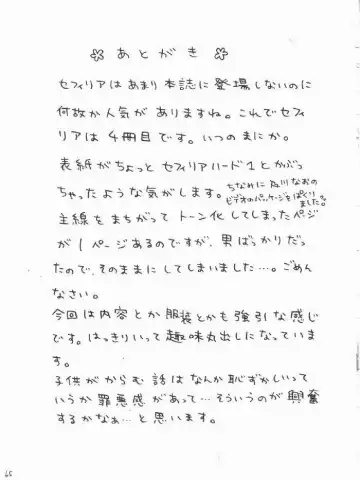 ✿ あとがき ✿
セフィリアはあまり本誌に登場しないのに
何故か人気がありますね。これでセフィ
リアは4冊目です。いつのまにか。
表紙がちょっとセフィリアハード1とかぶっ
ちゃったような気がします。ちなみに及川なおの
ビデオのパッケージをぱくり
ました。
主線をまちがってトーン化してしまったページ
が1ページあるのですが、男ばっかりだっ
たので、そのままにしてしまいました…。ごめん
なさい。
今回は内容とか服装とかも強引な感じ
です。はっきりいって趣味丸出しになっていま
す。
子供がからむ話はなんか恥ずかしいって
いうか罪悪感があって…そういうのが興奮
するかなぁ…と思います。
65